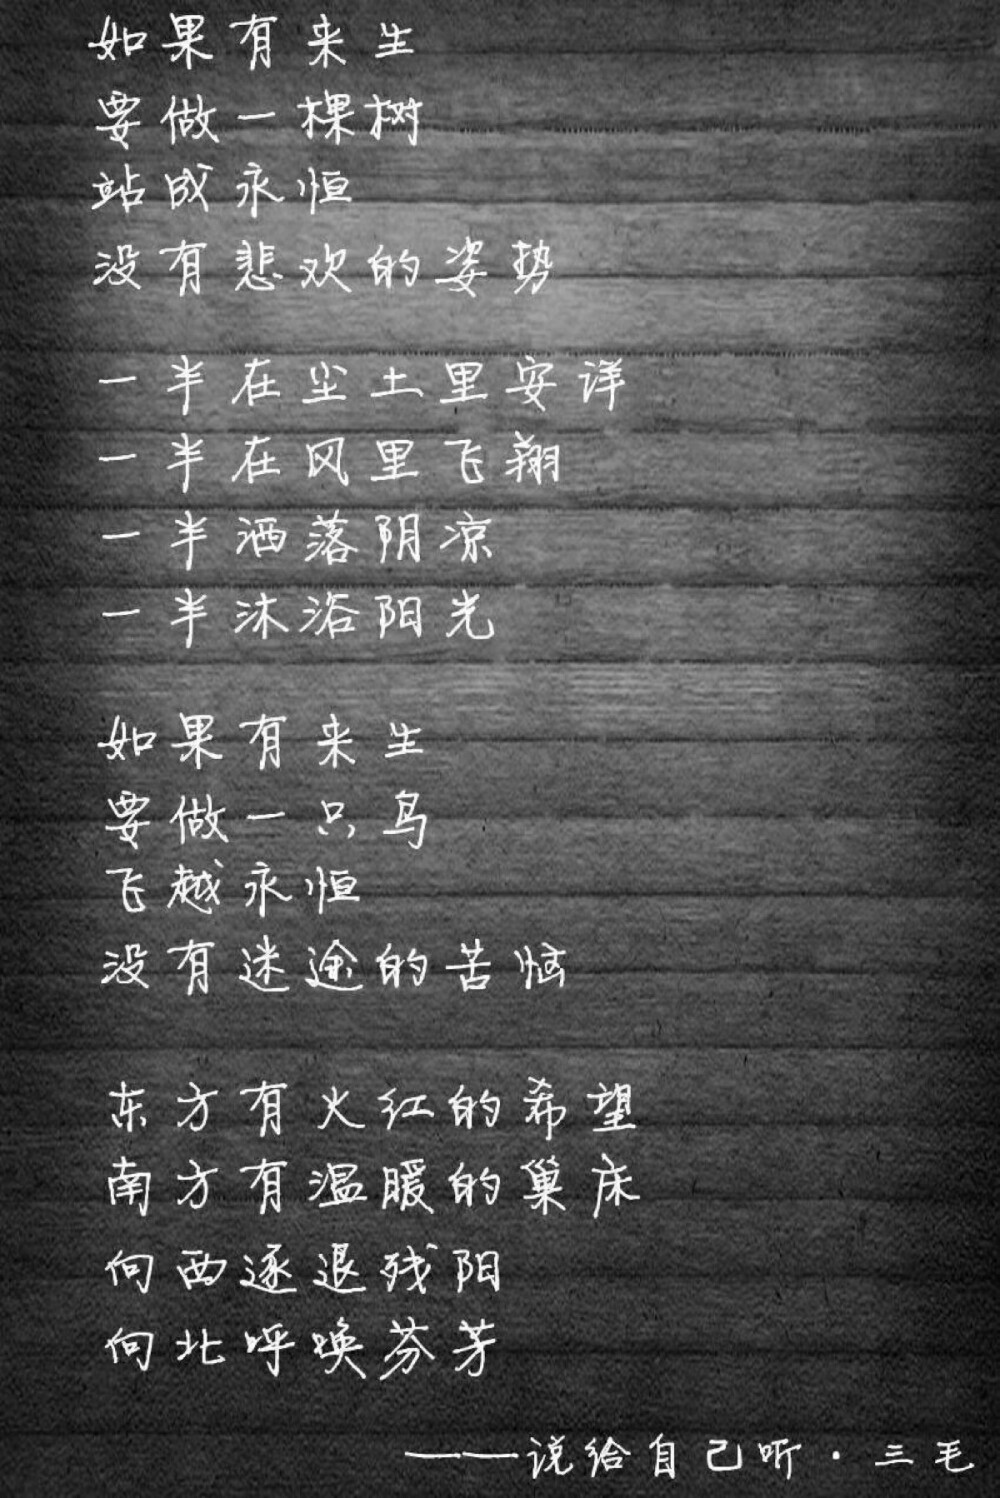 如果有来生
要做一棵树
站成永恒
没有悲欢的姿势
一半在尘土里安详
一半在风里飞翔
一半洒落阴凉
一半沐浴阳光
如果有来生
要做一只鸟
飞越永恒
没有迷途的苦恼
东方有火红的希望
南方有温暖的巢床
向西逐退残阳
向北呼唤芬芳
——说给自己听·三毛